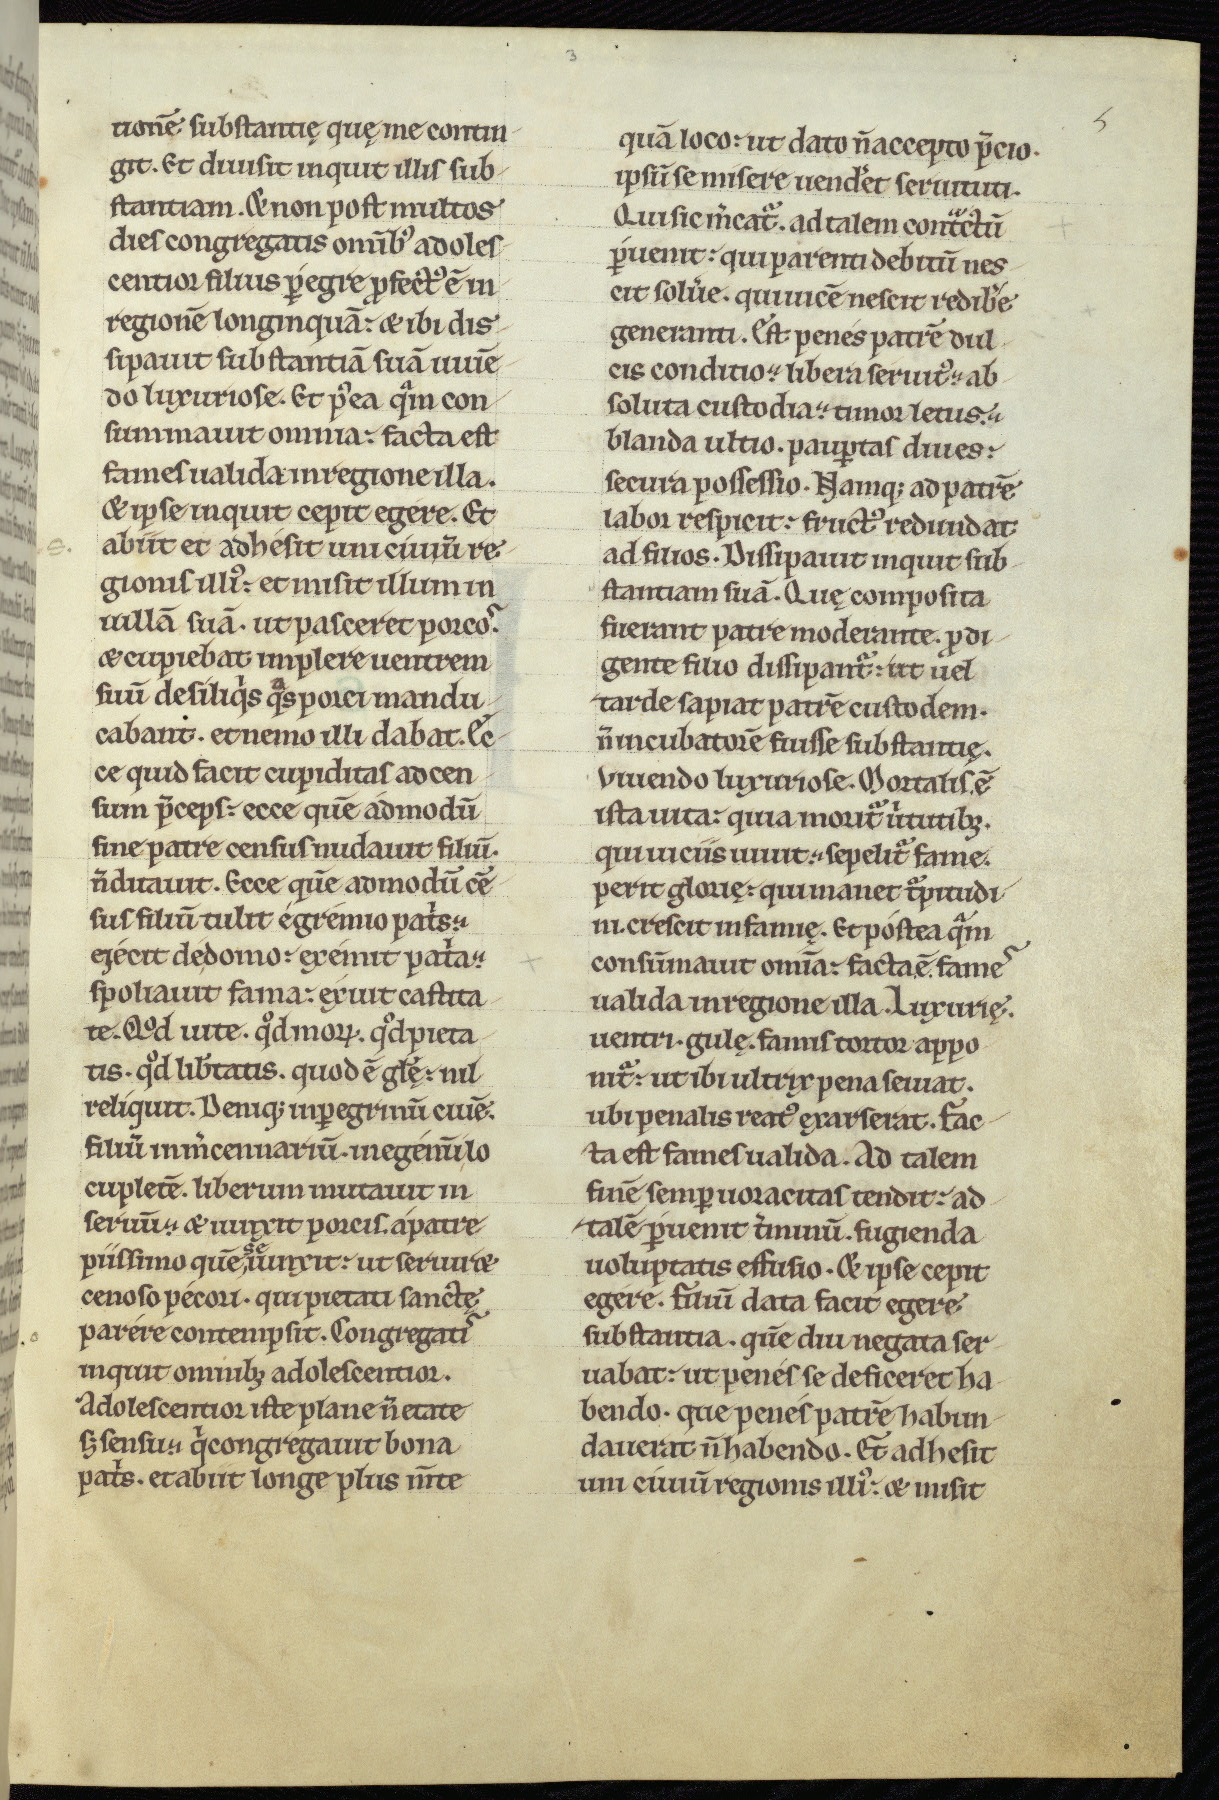 3
5
tionē substantię quę me contin
git. Et diuisit inquit illis sub
stantiam. & non post multos
dies congregatis omīb᷒ adoles
centior filius ꝑegre ꝓfect᷒ ē in
regionē longinquā: & ibi dis
sipauit substantiā suā uiuē
do luxuriose. Et p᷒ea qͣm con
summauit omnia: facta est
fames ualida in regione illa.
& ipse inquit cepit egere. Et
abiit et adhesit uni ciuiū re
gionis illi᷒: et misit illum in
uillā suā. ut pasceret porcos.
& cupiebat implere uentrem
suū de siliqͥs qͣs porci mandu
cabant. et nemo illi dabat. Ec
ce quid facit cupiditas ad cen
sum p̄ceps: ecce quē admodū
sine patre census nudauit filiū.
n̄ ditauit. Ecce quē admodū cē
sus filiū tulit e gremio patͥs:
ejecit de domo: exemit patͥa:
spoliauit fama: exuit castita
te. Qͦd uite. qͦd moꝝ. qͦd pieta
tis. qͦd lib̄tatis. quod ē gl̄ę: nil
reliquit. Deniq; in ꝑegrinū ciuē.
filiū in m̄cennariū. in egenū lo
cupletē. liberum mutauit in
seruū: & iunxit porcis. a patre
piissimo quē se iunxit: ut seruire
cenoso pecori. qui pietati sanctę
parere contempsit. Congregatis
inquit omnibꝫ adolescentior.
Adolescentior iste plane n̄ etate
sꝫ sensu: qͥ congregauit bona
patͥs. et abiit longe plus m̄te
quā loco: ut dato n̄ accepto p̄cio.
ipsū se misere uend̄et seruituti.
Qui sic m̄catͣ. ad talem contͣctū
ꝑuenit: qui parenti debitū nes
cit solu̾e. qui uicē nescit redib̾e
generanti. Est penes patrē dul
cis conditio: libera seruit᷒: ab
soluta custodia: timor letus:
blanda ultio. paupͥtas diues:
secura possessio. Namq; ad patrē
labor respicit: fruct᷒ redundat
ad filios. Dissipauit inquit sub
stantiam suā. Quę composita
fuerant patre moderante. ꝓdi
gente filio dissipantͣ: ut uel
tarde sapiat patrē custodem.
n̄ incubatorē fuisse substantię.
Viuendo luxuriose. Mortalis ē
ista uita: quia moritͣ u̾tutibꝫ.
qui uiciis uiuit: sepelitͣ fame.
perit glorię: qui manet t᷑pitudi
ni. crescit infamię. Et postea qͣm
consūmauit omīa: facta ē fames
ualida in regione illa. Luxurię.
uentri. gulę. famis tortor appo
nitͣ: ut ibi ultrix pena seuiat.
ubi penalis reat᷒ exarserat. Fac
ta est fames ualida. Ad talem
finē semꝑ uoracitas tendit: ad
talē ꝑuenit t̾minū. fugienda
uoluptatis effusio. & ipse cepit
egere. Filiū data facit egere
substantia. quē diu negata ser
uabat: ut penes se deficeret ha
bendo. que penes patrē habun
dauerat n̄ habendo. Et adhesit
uni ciuiū regionis illi᷒: & misit